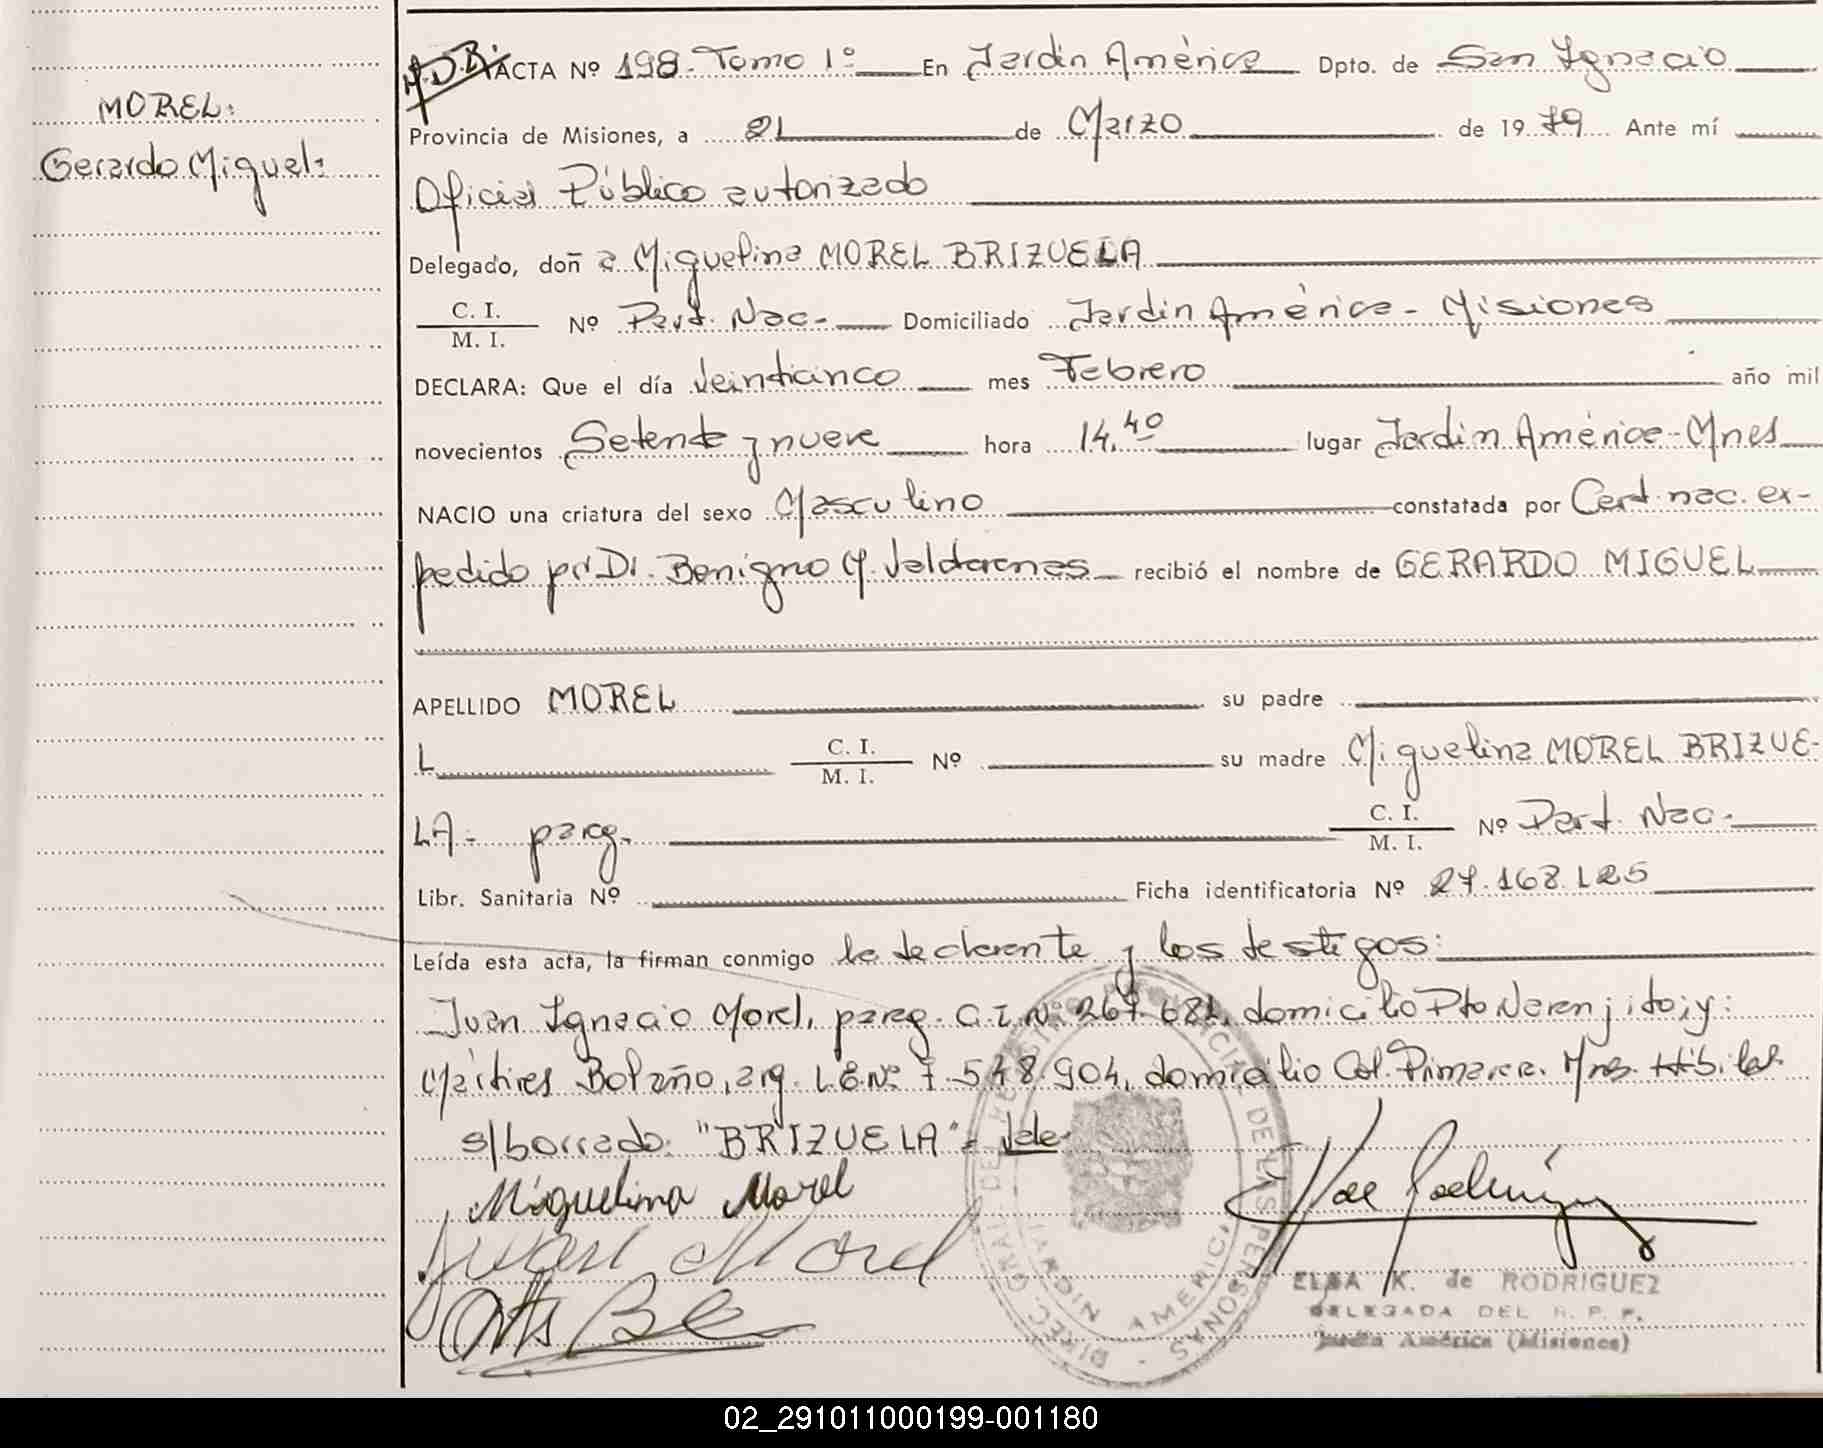 MOREL:
Gerardo Miguel:
A.D.B. ACTA Nº 198 - Tomo 1º En Jardin América Dpto. de San Ignacio
Provincia de Misiones, a 21 de Marzo de 1979 Ante mí
Oficial Público autorizado
Delegado, doñ a Miguelina MOREL BRIZUELA
C. I.
M. I. Nº Part. Nac. - Domiciliado Jardin América - Misiones
DECLARA: Que el día Veinticinco mes Febrero año mil
novecientos Setenta y nueve hora 14.40 lugar Jardin América - Mnes
NACIO una criatura del sexo Masculino constatada por Cert. nac. ex-
pedido pr Dr. Benigno M. recibió el nombre de GERARDO MIGUEL
APELLIDO MOREL su padre
C. I.
M. I. Nº su madre Miguelina MOREL BRIZUE-
LA - parag. C. I.
M. I. Nº Part. Nac. -
Libr. Sanitaria Nº Ficha identificatoria Nº 27.168.125
Leída esta acta, la firman conmigo la declarante y los testigos:
Juan Ignacio Morel, parag. C.I. Nº 267.681, domicilio Pto Naranjito; y:
Mártires Bolaño, arg. L.E. Nº 7.548.904, domicilio Col. Primavera. Mnes. Háb. les.
s/borrado: "BRIZUELA" = Vale
Miguelina Morel
Juan Morel
DIREC. GRAL. DEL REGISTRO PROVINCIAL DE LAS PERSONAS
JARDIN AMERICA
ELSA K. de RODRIGUEZ
DELEGADA DEL R. P. P.
Jardín América (Misiones)
02_291011000199-001180